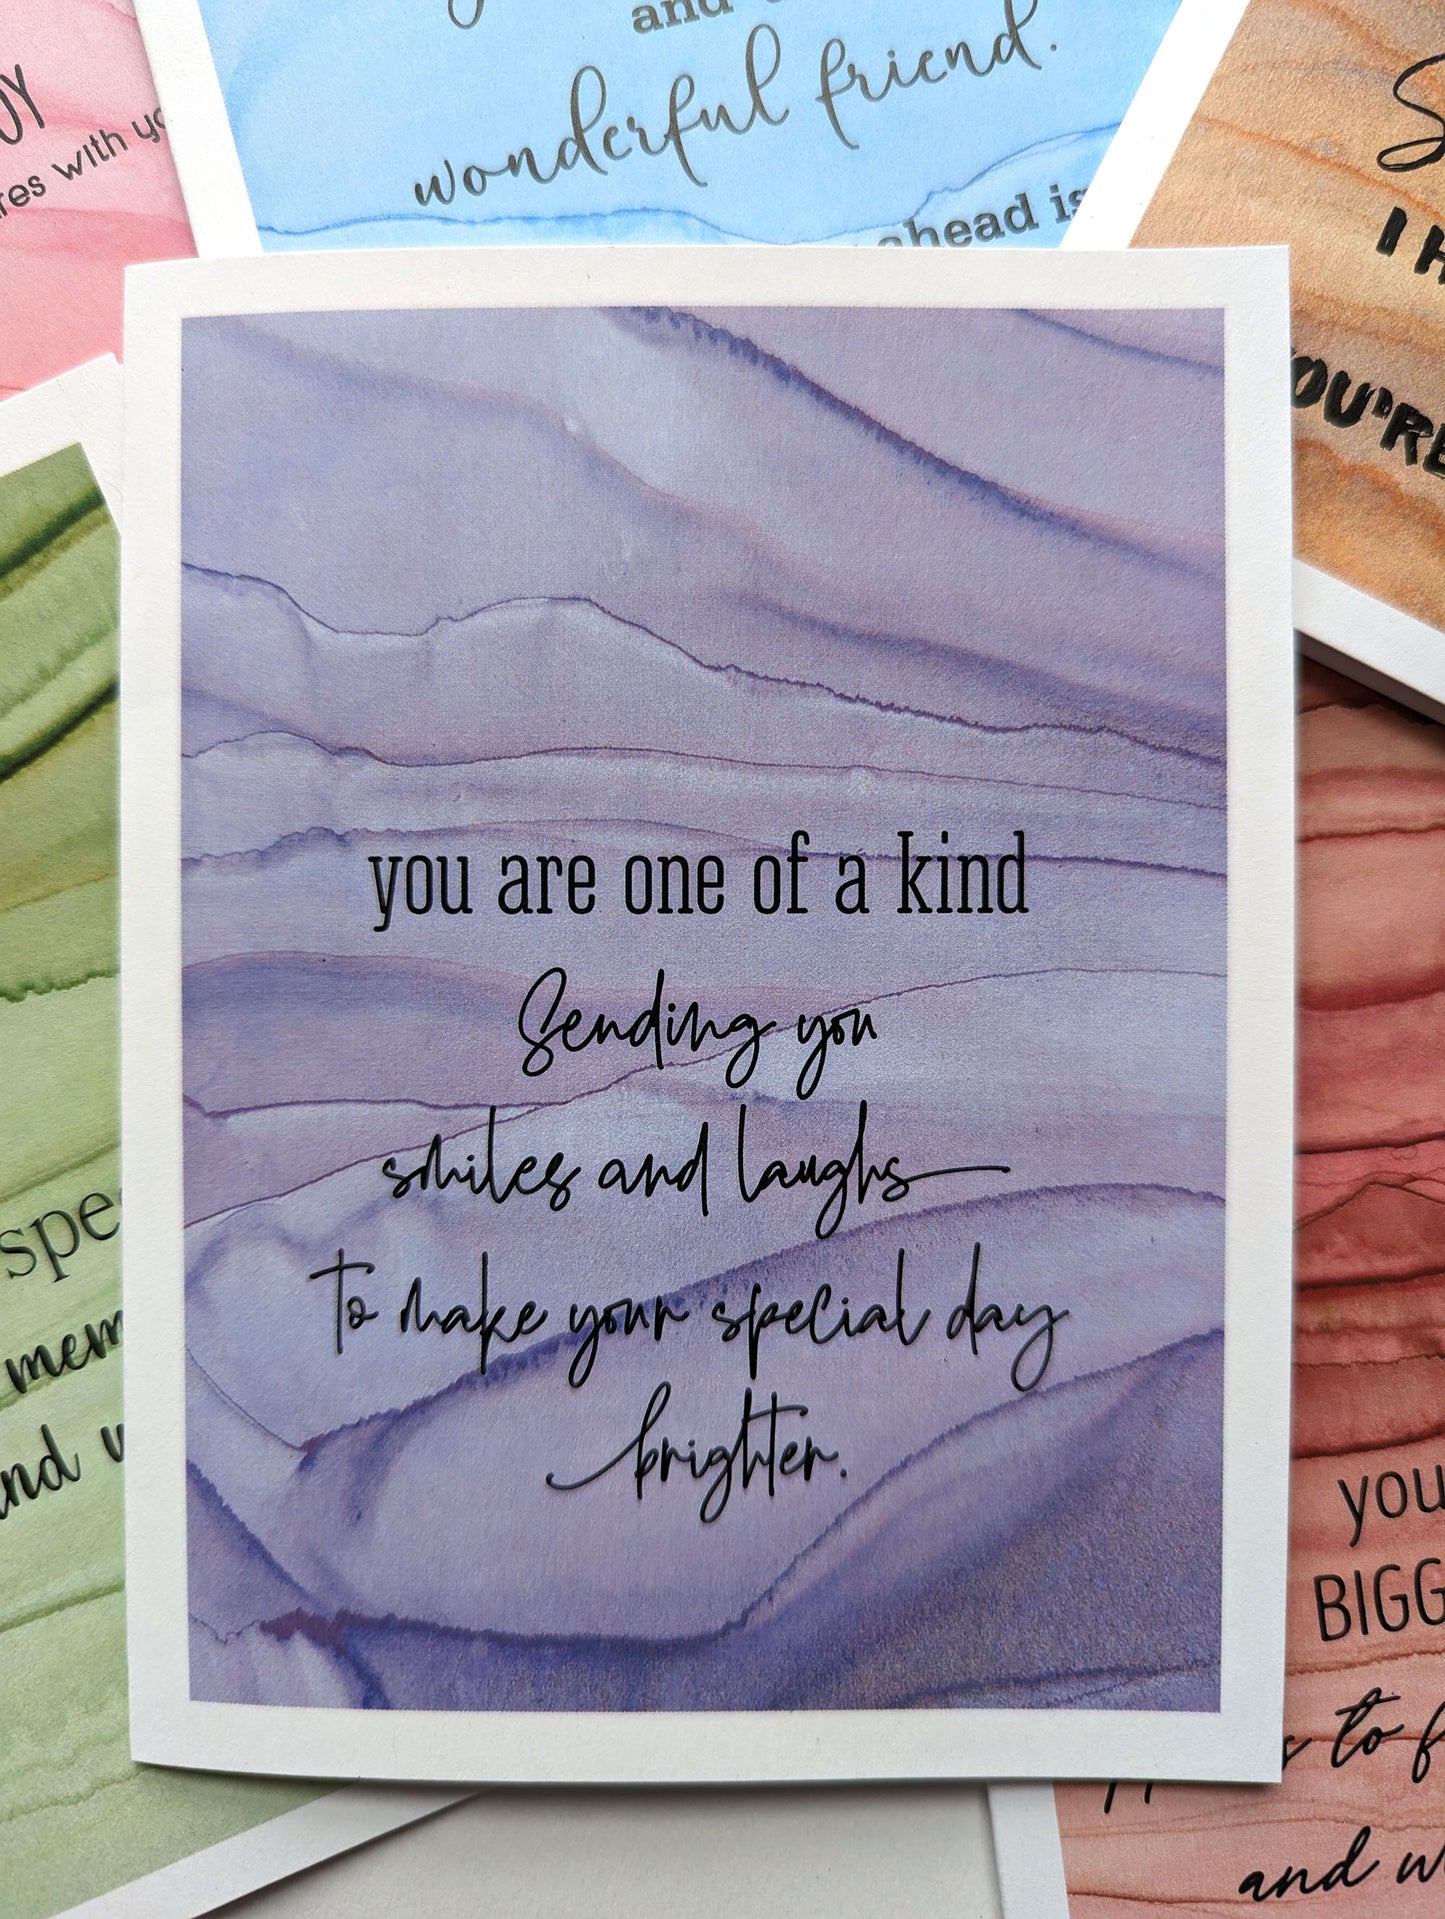 and
wonderful friend.
ahead is
with
I
YOU'RE
you are one of a kind
Sending you
smiles and laughs
to make your special day
brighter.
and
you
to
and